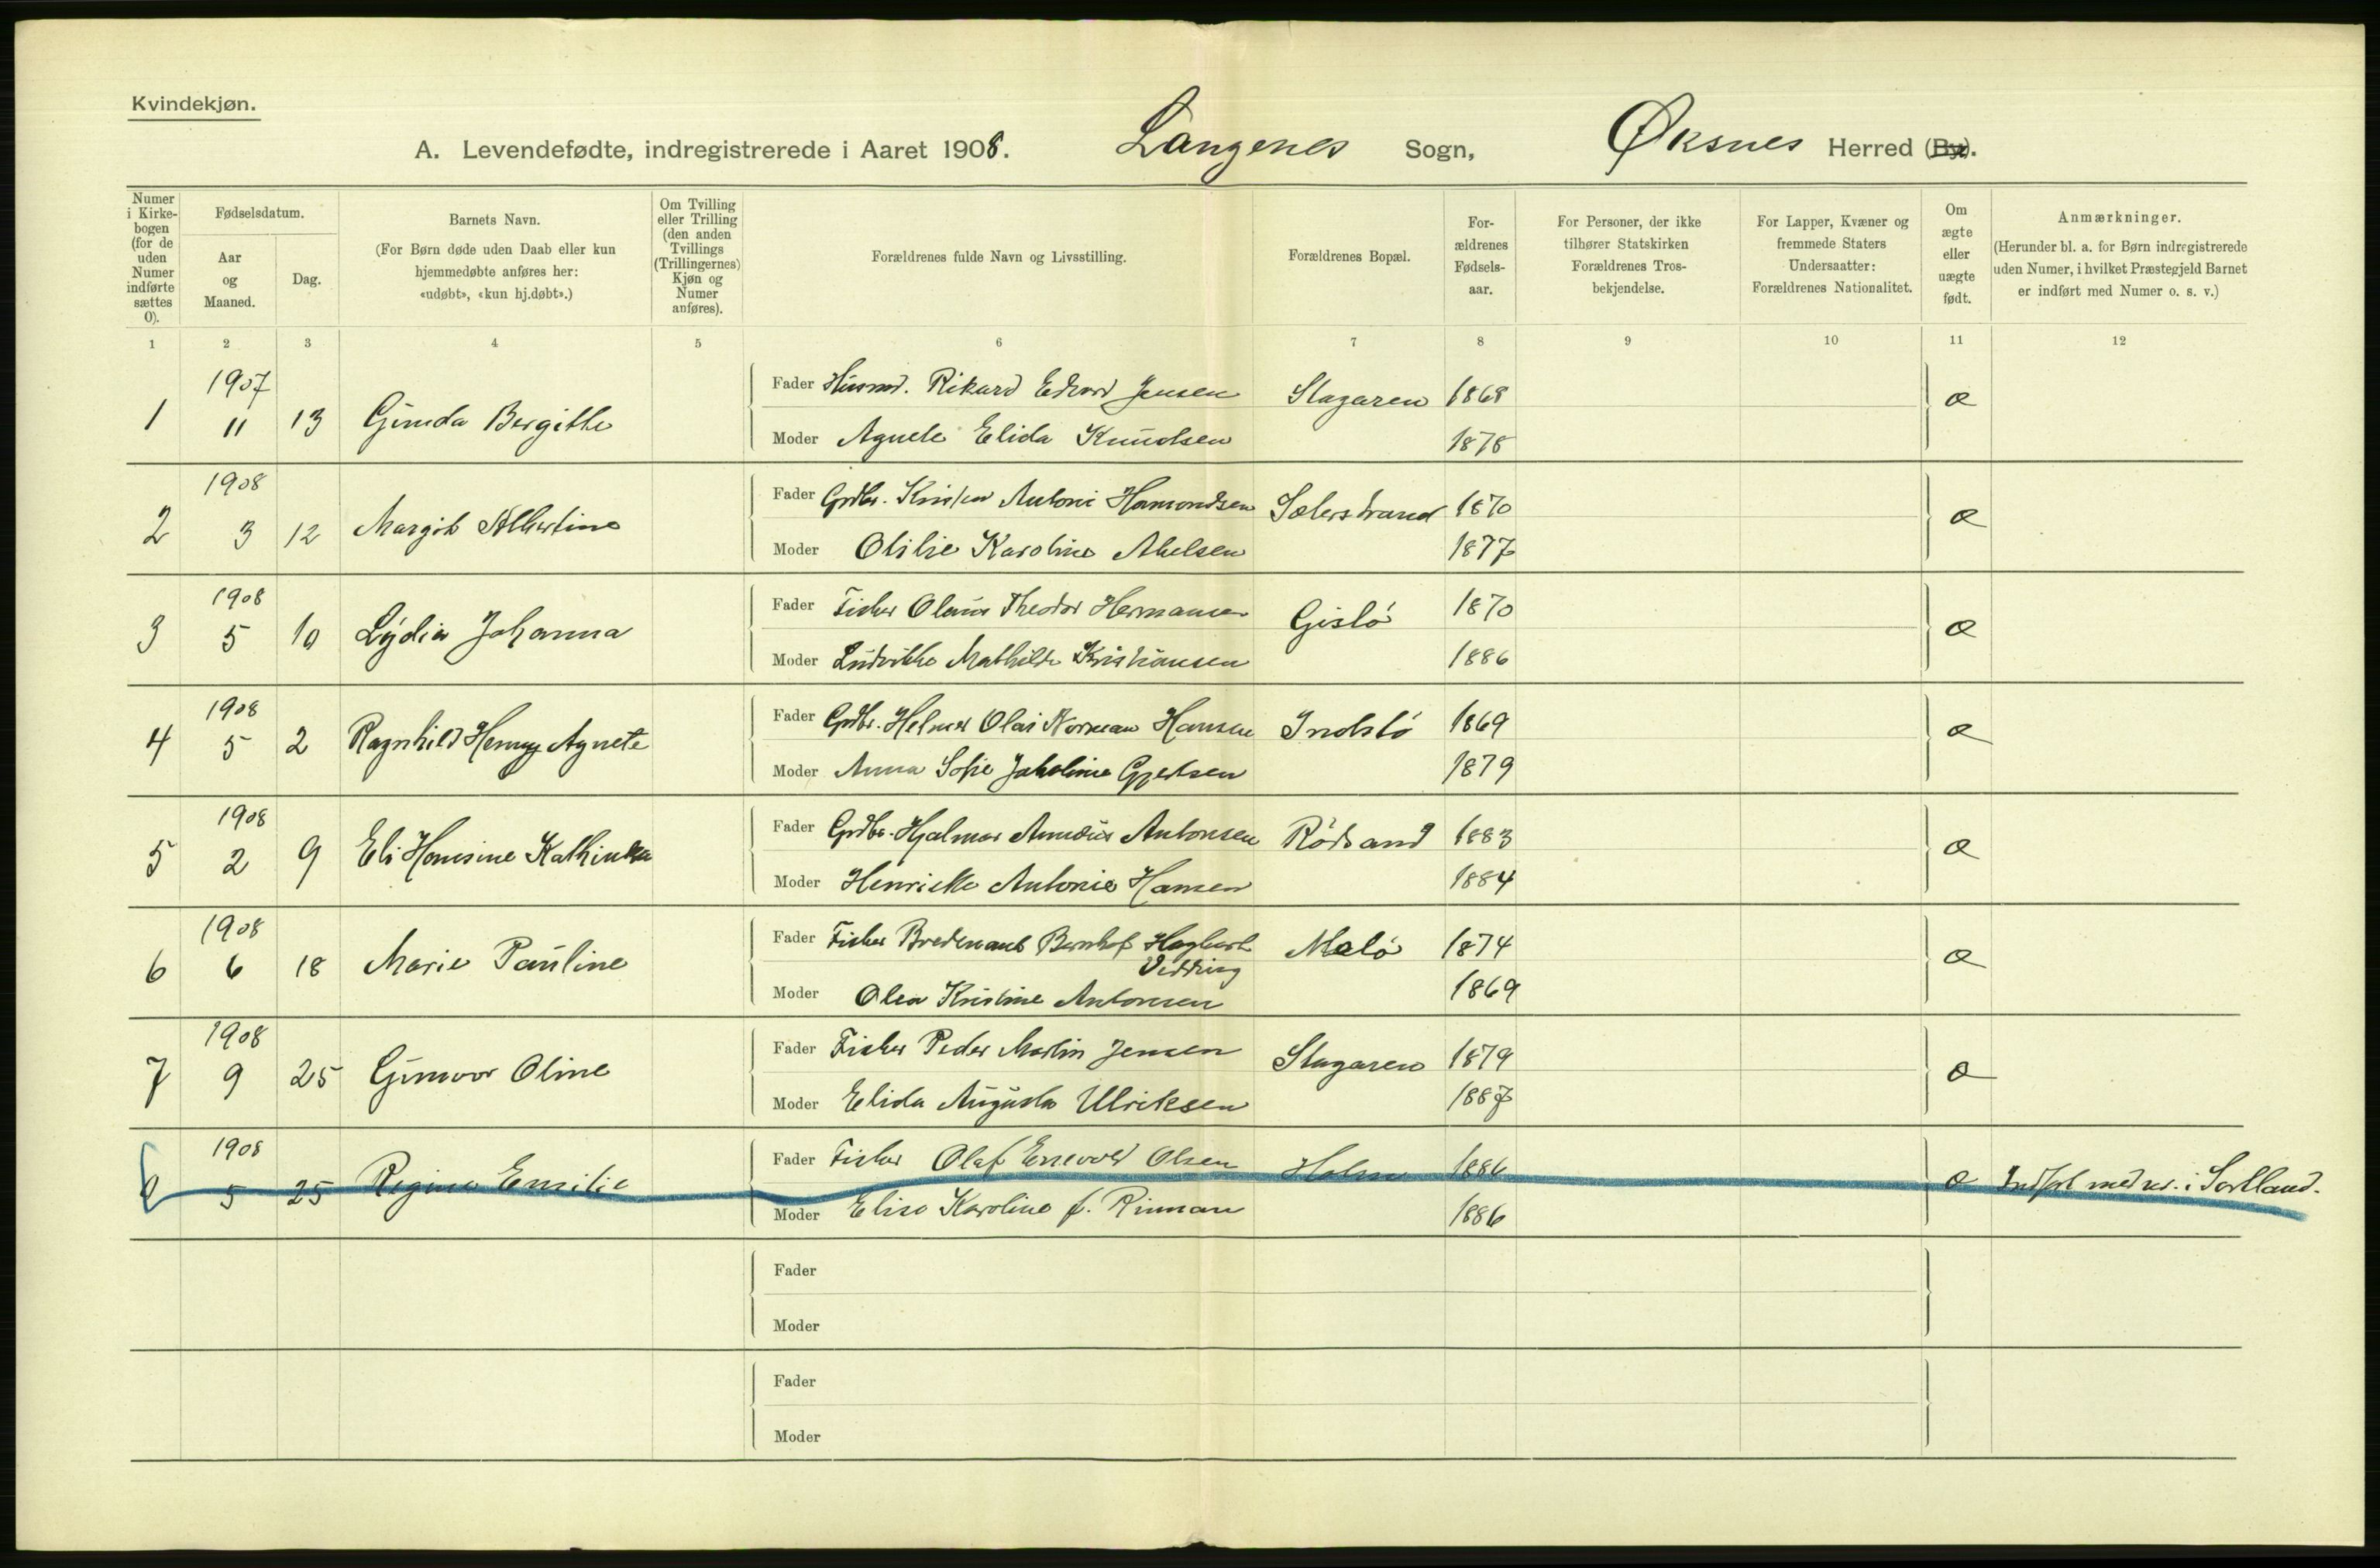 Kvindekjøn.
A. Levendefødte, indregistrerede i Aaret 1908. Langenes Sogn, Øksnes Herred (By).
Numer i Kirkebogen (for de uden Numer indførte sættes 0).
Fødselsdatum.
Aar og Maaned.
Dag.
Barnets Navn.
(For Børn døde uden Daab eller kun hjemmedøbte anføres her: «udøbt», «kun hj.døbt».)
Om Tvilling eller Trilling (den anden Tvillings (Trillingernes) Kjøn og Numer anføres).
Forældrenes fulde Navn og Livsstilling.
Forældrenes Bopæl.
Forældrenes Fødselsaar.
For Personer, der ikke tilhører Statskirken Forældrenes Trosbekjendelse.
For Lapper, Kvæner og fremmede Staters Undersaatter: Forældrenes Nationalitet.
Om ægte eller uægte født.
Anmærkninger.
(Herunder bl. a. for Børn indregistrerede uden Numer, i hvilket Præstegjeld Barnet er indført med Numer o. s. v.)
1 2 3 4 5 6 7 8 9 10 11 12
1907
1 11 13 Gunda Bergithe
Fader Husmd. Rikard Edvard Jensen Stagaren 1868 æ
Moder Agnete Elida Knudsen 1878
1908
2 3 12 Margit Albertine
Fader Grdbr. Antoni Hamondsen 1870 æ
Moder Otilie Karoline Abelsen 1877
1908
3 5 10 Lydia Johanna
Fader Fisker Olaus Theodor Hermansen Gislö 1870 æ
Moder Ludvikke Mathilde Kristiansen 1886
1908
4 5 2 Ragnhild Henny Agnete
Fader Grdbr. Helmer Olai Norman Hansen 1869 æ
Moder Anna Sofie Jakobine Gjertsen 1879
1908
5 2 9 Eli Hansine Kathinka
Fader Grdbr. Hjalmar Antonsen Rödsand 1883 æ
Moder Henrikke Antonie Hansen 1884
1908
6 6 18 Marie Pauline
Fader Fisker Bernhof Hagbart Vedding 1874 æ
Moder Olea Kristine Antonsen 1869
1908
7 9 25 Gunvor Oline
Fader Fisker Peder Martin Jensen Stagaren 1879 æ
Moder Elida Augusta Ulriksen 1887
1908
0 5 25 Regina Emilie
Fader Fisker Olaf Enevold Olsen Holm 1886 æ Indført med nr. i Sortland.
Moder Elise Karoline f. Rinman 1886
Fader
Moder
Fader
Moder